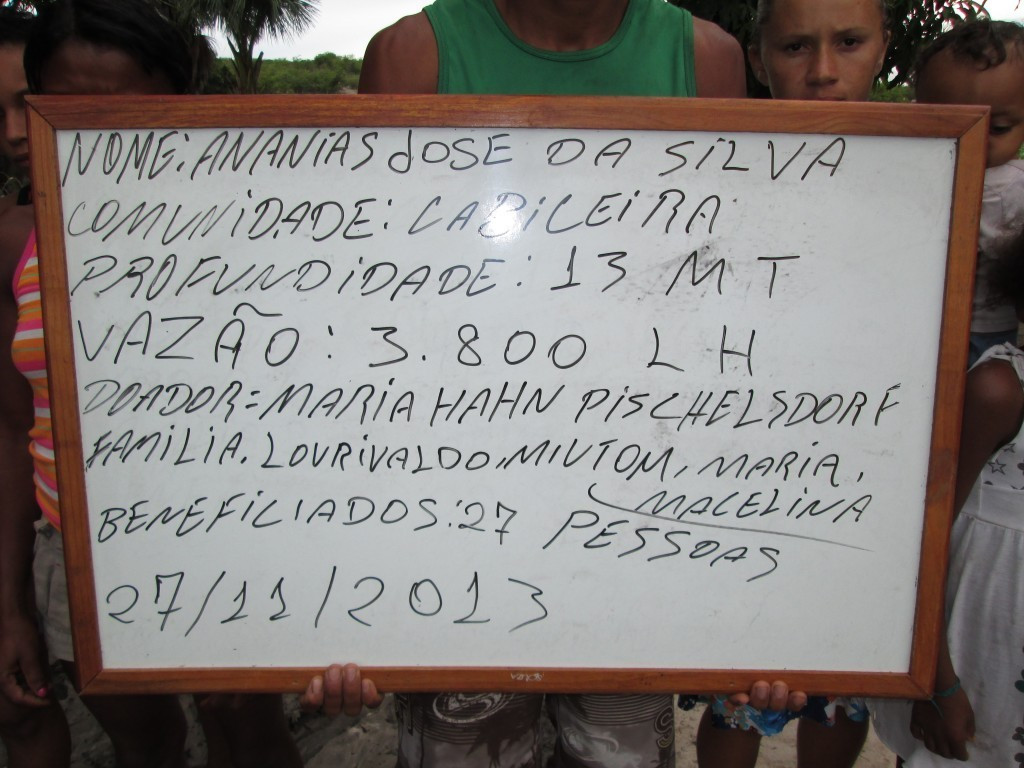 NOME: ANANIAS JOSE DA SILVA
COMUNIDADE: CABICEIRA
PROFUNDIDADE: 13 MT
VAZÃO: 3.800 LH
DOADOR = MARIA HAHN PISCHELSDORF
FAMILIA. LOURIVALDO, MIUTOM, MARIA,
MACELINA
BENEFICIADOS: 27 PESSOAS
27/11/2013